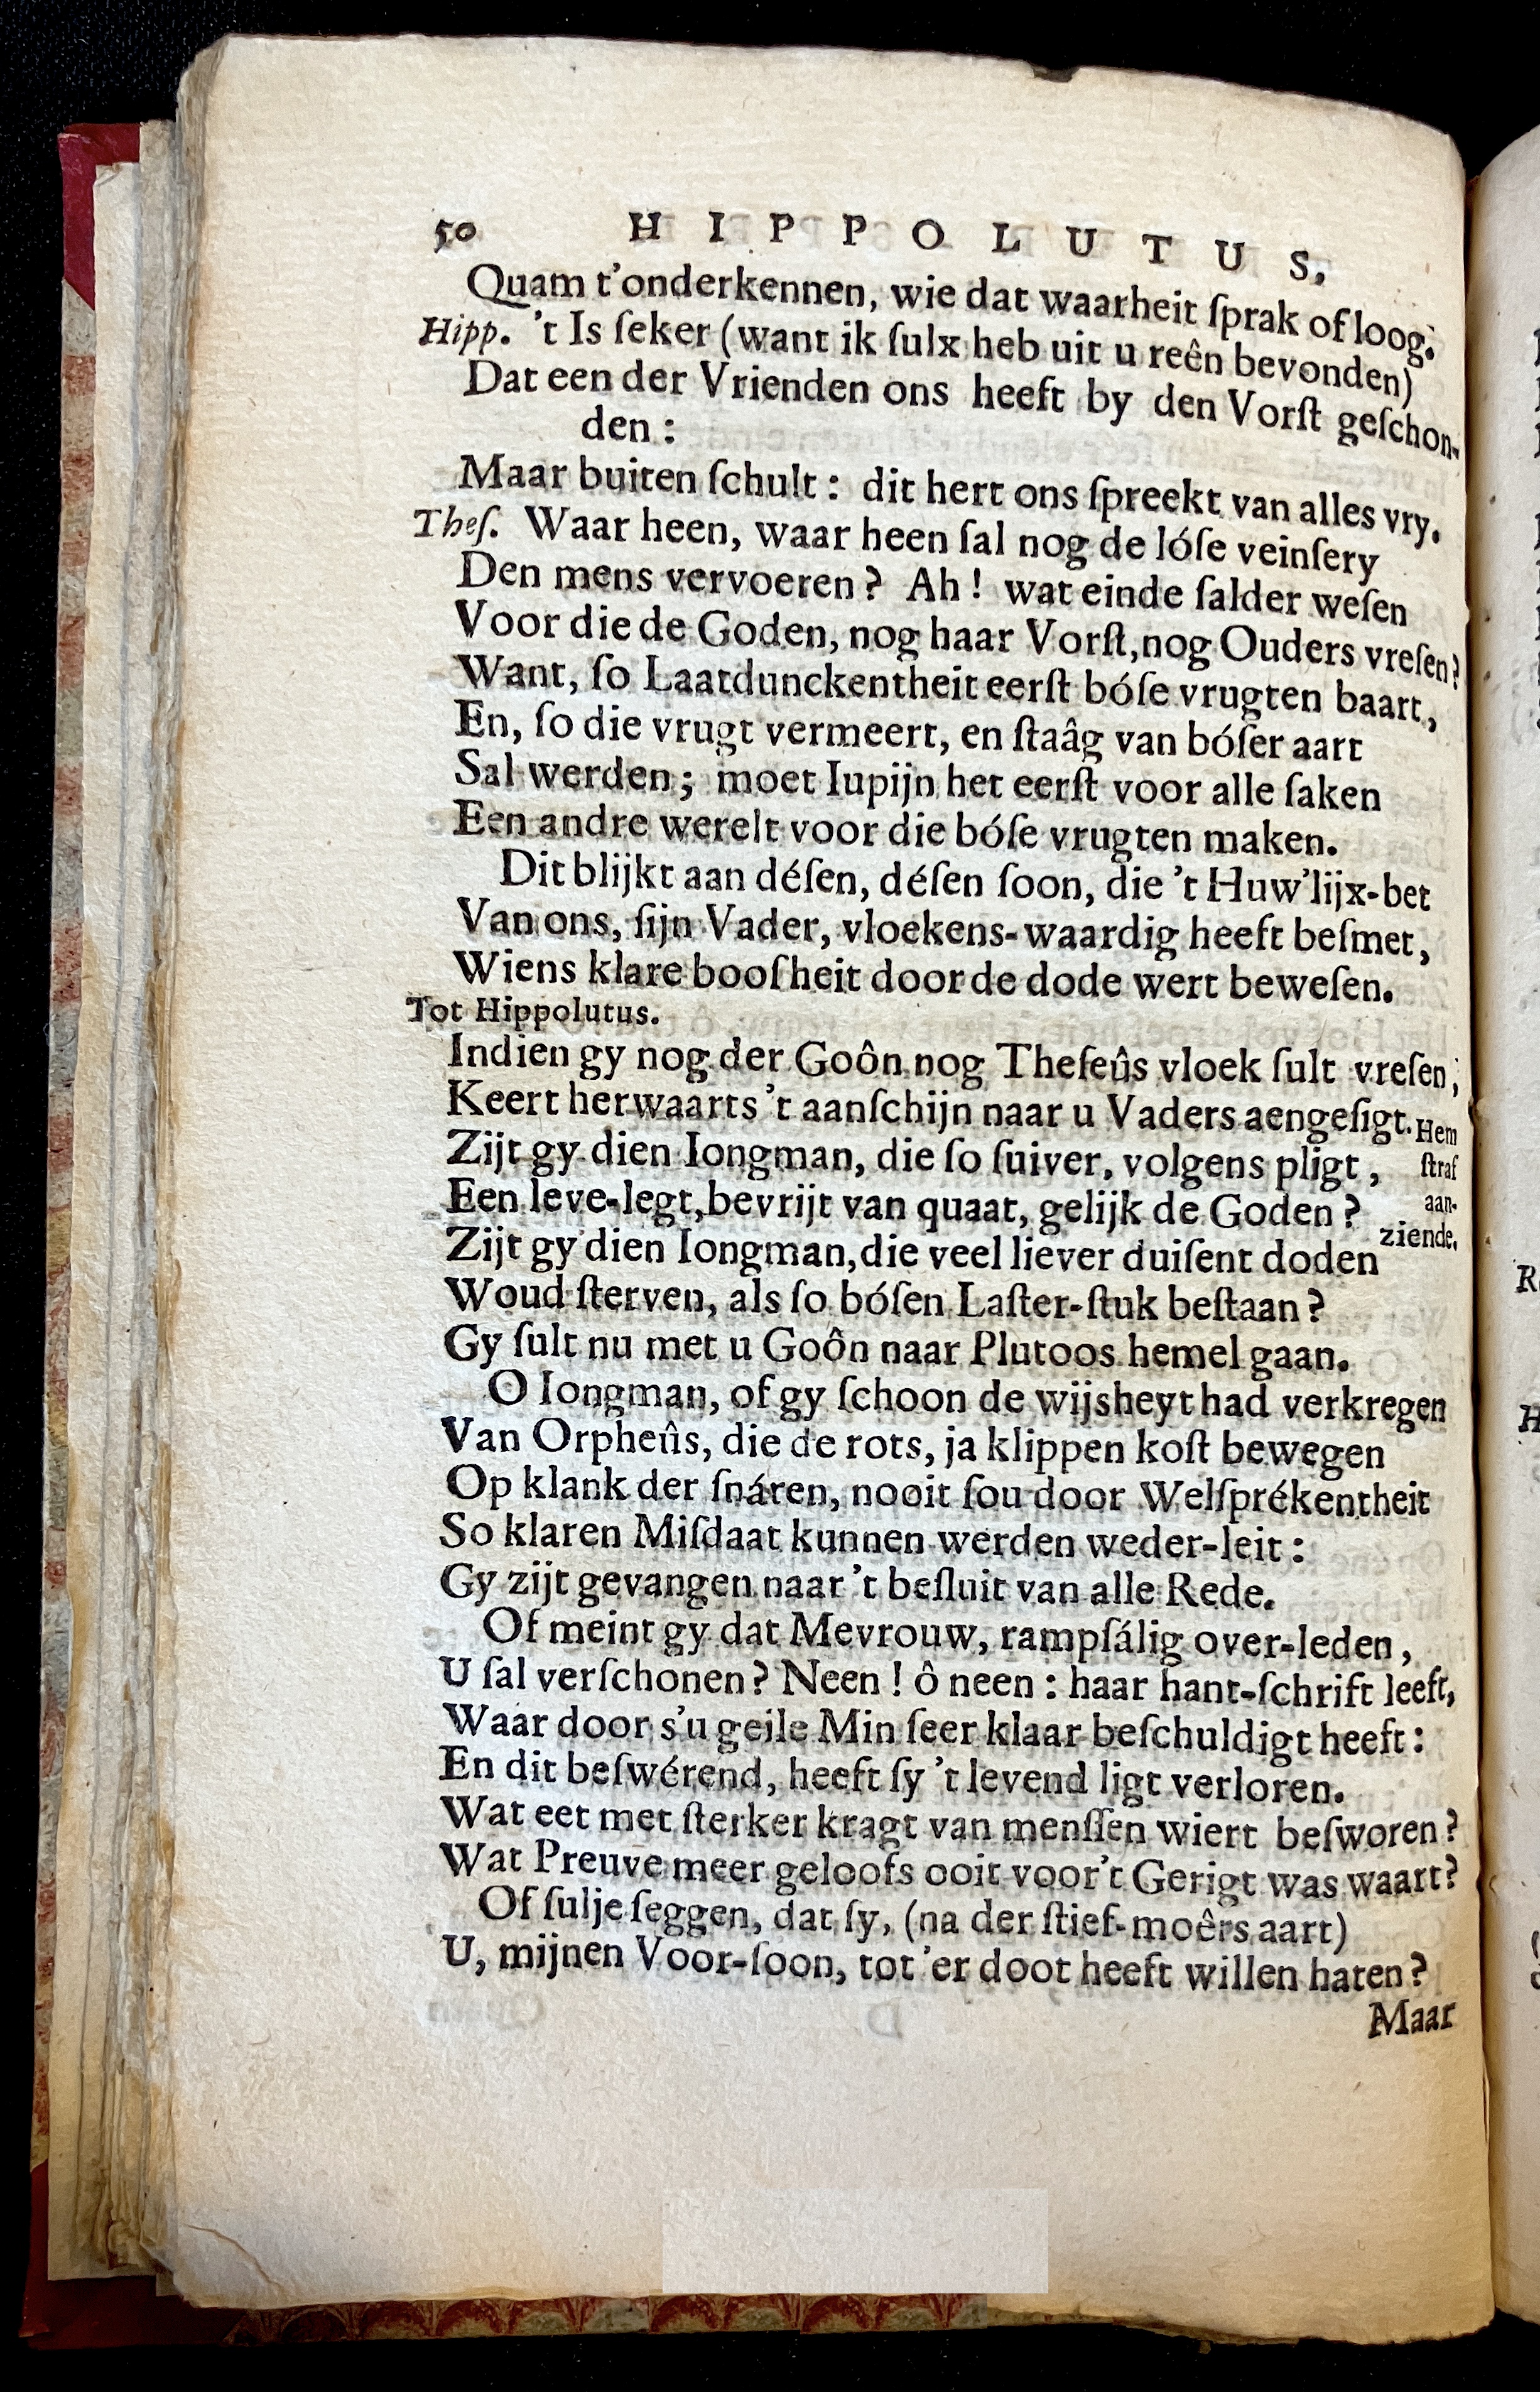 50 HIPPOLUTUS.
Quam t'onderkennen, wie dat waarheit ſprak of loog.
Hipp. 't Is ſeker (want ik ſulx heb uit u reên bevonden)
Dat een der Vrienden ons heeft by den Vorſt geſchon-
den:
Maar buiten ſchult: dit hert ons ſpreekt van alles vry.
Theſ. Waar heen, waar heen ſal nog de lóſe veinſery
Den mens vervoeren? Ah! wat einde ſalder weſen
Voor die de Goden, nog haar Vorſt, nog Ouders vreſen?
Want, ſo Laatdunckentheit eerſt bóſe vrugten baart,
En, ſo die vrugt vermeert, en ſtaâg van bóſer aart
Sal werden; moet Iupijn het eerſt voor alle ſaken
Een andre werelt voor die bóſe vrugten maken.
Dit blijkt aan déſen, déſen ſoon, die 't Huw'lijx-bet
Van ons, ſijn Vader, vloekens-waardig heeft beſmet,
Wiens klare boosheit door de dode wert beweſen.
Tot Hippolutus.
Indien gy nog der Goôn nog Theſeûs vloek ſult vreſen,
Keert herwaarts 't aanſchijn naar u Vaders aengeſigt. Hem
Zijt gy dien Iongman, die ſo ſuiver, volgens pligt, ſtraf
Een leve-legt, bevrijt van quaat, gelijk de Goden? aan-
Zijt gy dien Iongman, die veel liever duiſent doden ziende.
Woud ſterven, als ſo bóſen Laſter-ſtuk beſtaan?
Gy ſult nu met u Goôn naar Plutoos hemel gaan.
O Iongman, of gy ſchoon de wijsheyt had verkregen
Van Orpheûs, die de rots, ja klippen koſt bewegen
Op klank der ſnáren, nooit ſou door Welſprékentheit
So klaren Miſdaat kunnen werden weder-leit:
Gy zijt gevangen naar 't beſluit van alle Rede.
Of meint gy dat Mevrouw, rampſálig over-leden,
U ſal verſchonen? Neen! ô neen: haar hant-ſchrift leeft,
Waar door s'u geile Min ſeer klaar beſchuldigt heeft:
En dit beſwérend, heeft ſy 't levend ligt verloren.
Wat eet met ſterker kragt van menſſen wiert beſworen?
Wat Preuve meer geloofs ooit voor't Gerigt was waart?
Of ſulje ſeggen, dat ſy, (na der ſtief-moêrs aart)
U, mijnen Voor-ſoon, tot 'er doot heeft willen haten?
Maar